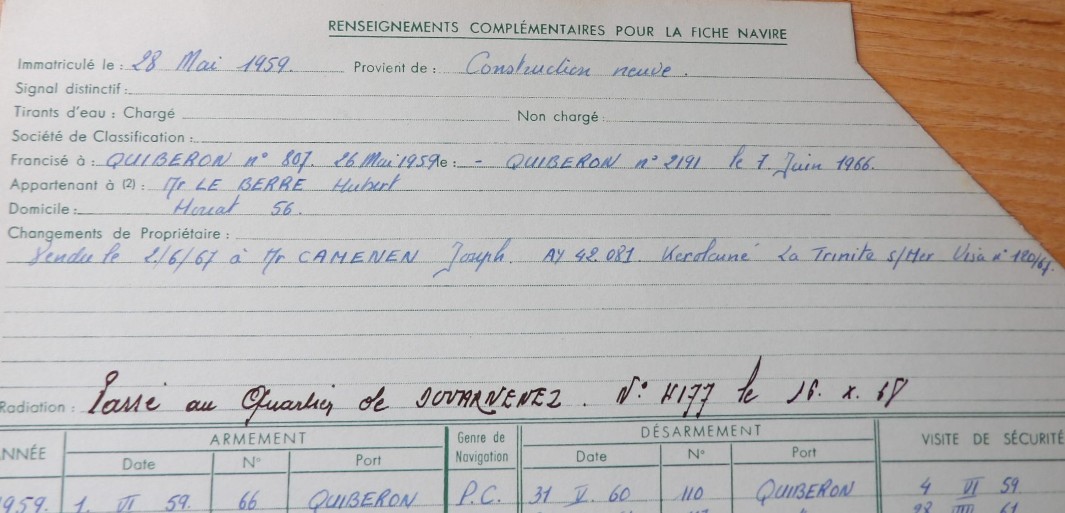 RENSEIGNEMENTS COMPLÉMENTAIRES POUR LA FICHE NAVIRE
Immatriculé le : 28 Mai 1959. Provient de : Construction neuve.
Signal distinctif :
Tirants d'eau : Chargé Non chargé :
Société de Classification :
Francisé à : QUIBERON n° 807. 26 Mai 1959 le : - QUIBERON n° 2191 le 7 Juin 1966.
Appartenant à (2) : Mr LE BERRE Hubert
Domicile : Houat 56.
Changements de Propriétaire :
Vendu le 2/6/67 à Mr CAMENEN Joseph. AY 42.081. La Trinite s/Mer Visa n° 120/67.
Radiation : Passé au Quartier de DOUARNENEZ. N° 4177 le 16. x. 68
ANNÉE ARMEMENT Genre de Navigation DÉSARMEMENT VISITE DE SÉCURITÉ
Date N° Port Date N° Port
1959. 1. VI 59. 66 QUIBERON P.C. 31 V. 60 110 QUIBERON 4 VI 59
61